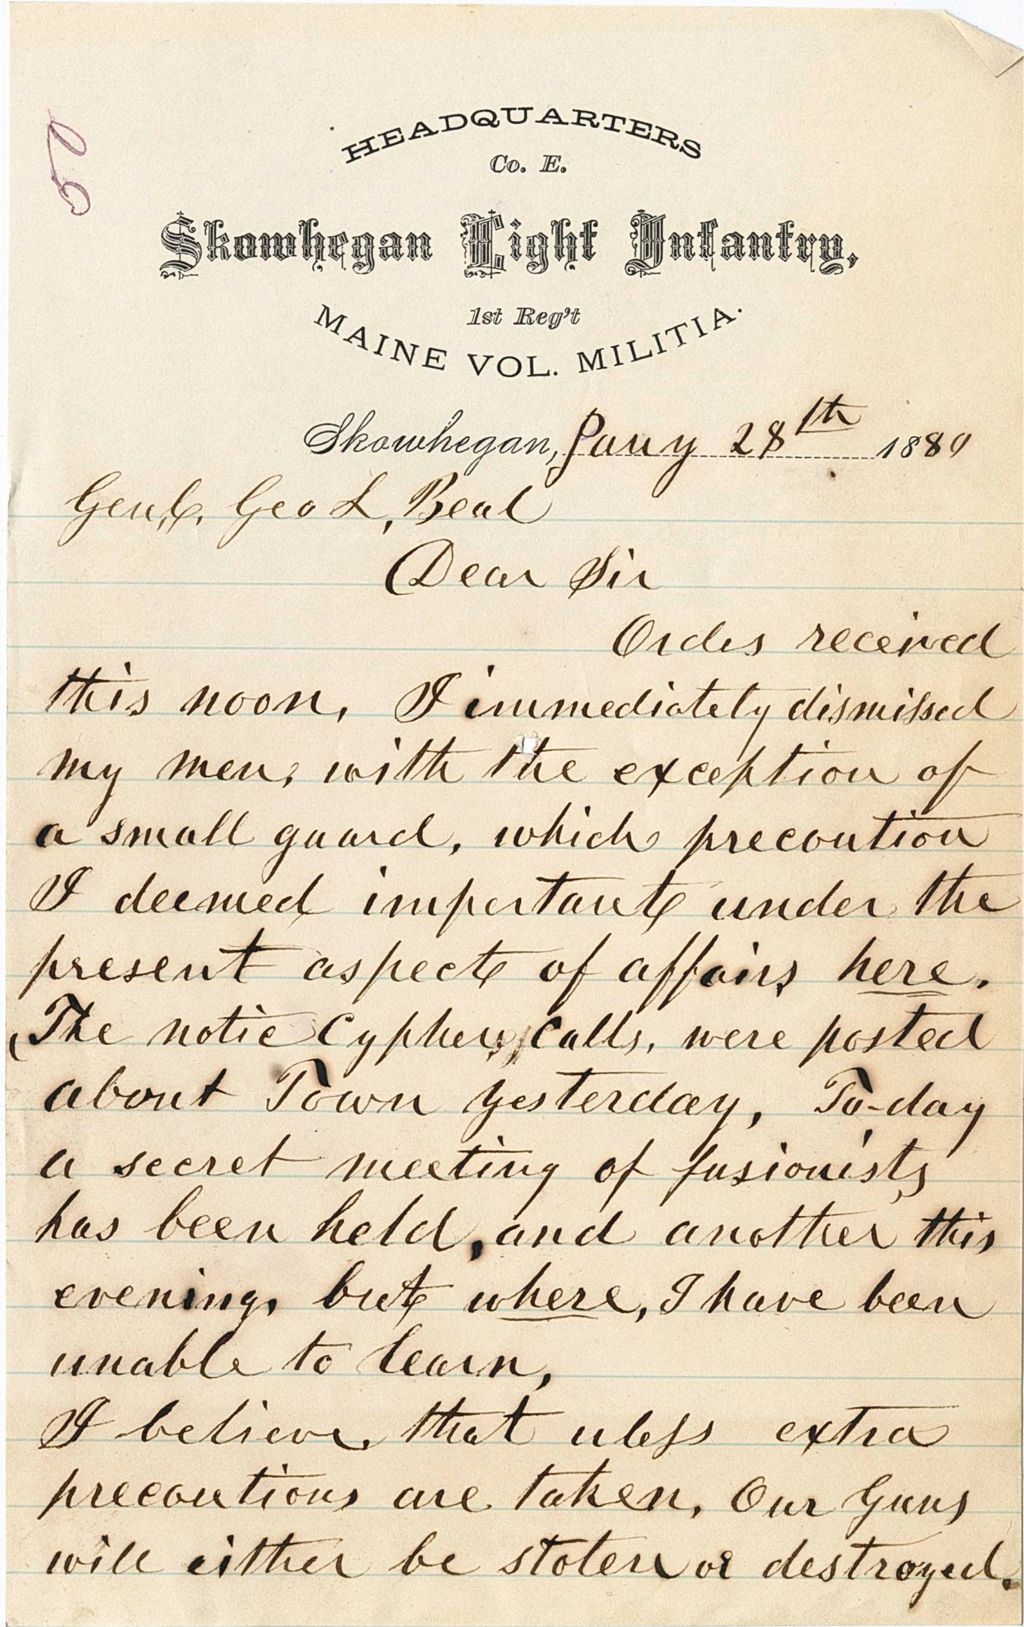 HEADQUARTERS
Co. E.
Skowhegan Light Infantry,
1st Reg't
MAINE VOL. MILITIA.
Skowhegan, Jany 28th 1880
Genl. Geo L, Beal
Dear Sir
Orders received
this noon, I immediately dismissed
my men, with the exception of
a small guard, which precoution
I deemed important under the
present aspect of affairs here.
The notic Cypher Calls, were posted
about Town yesterday, To-day
a secret meeting of fusionists
has been held, and another this
evening, but where, I have been
unable to learn,
I believe, that uless extra
precoutions are taken, Our Guns
will either be stolen or destroyed.